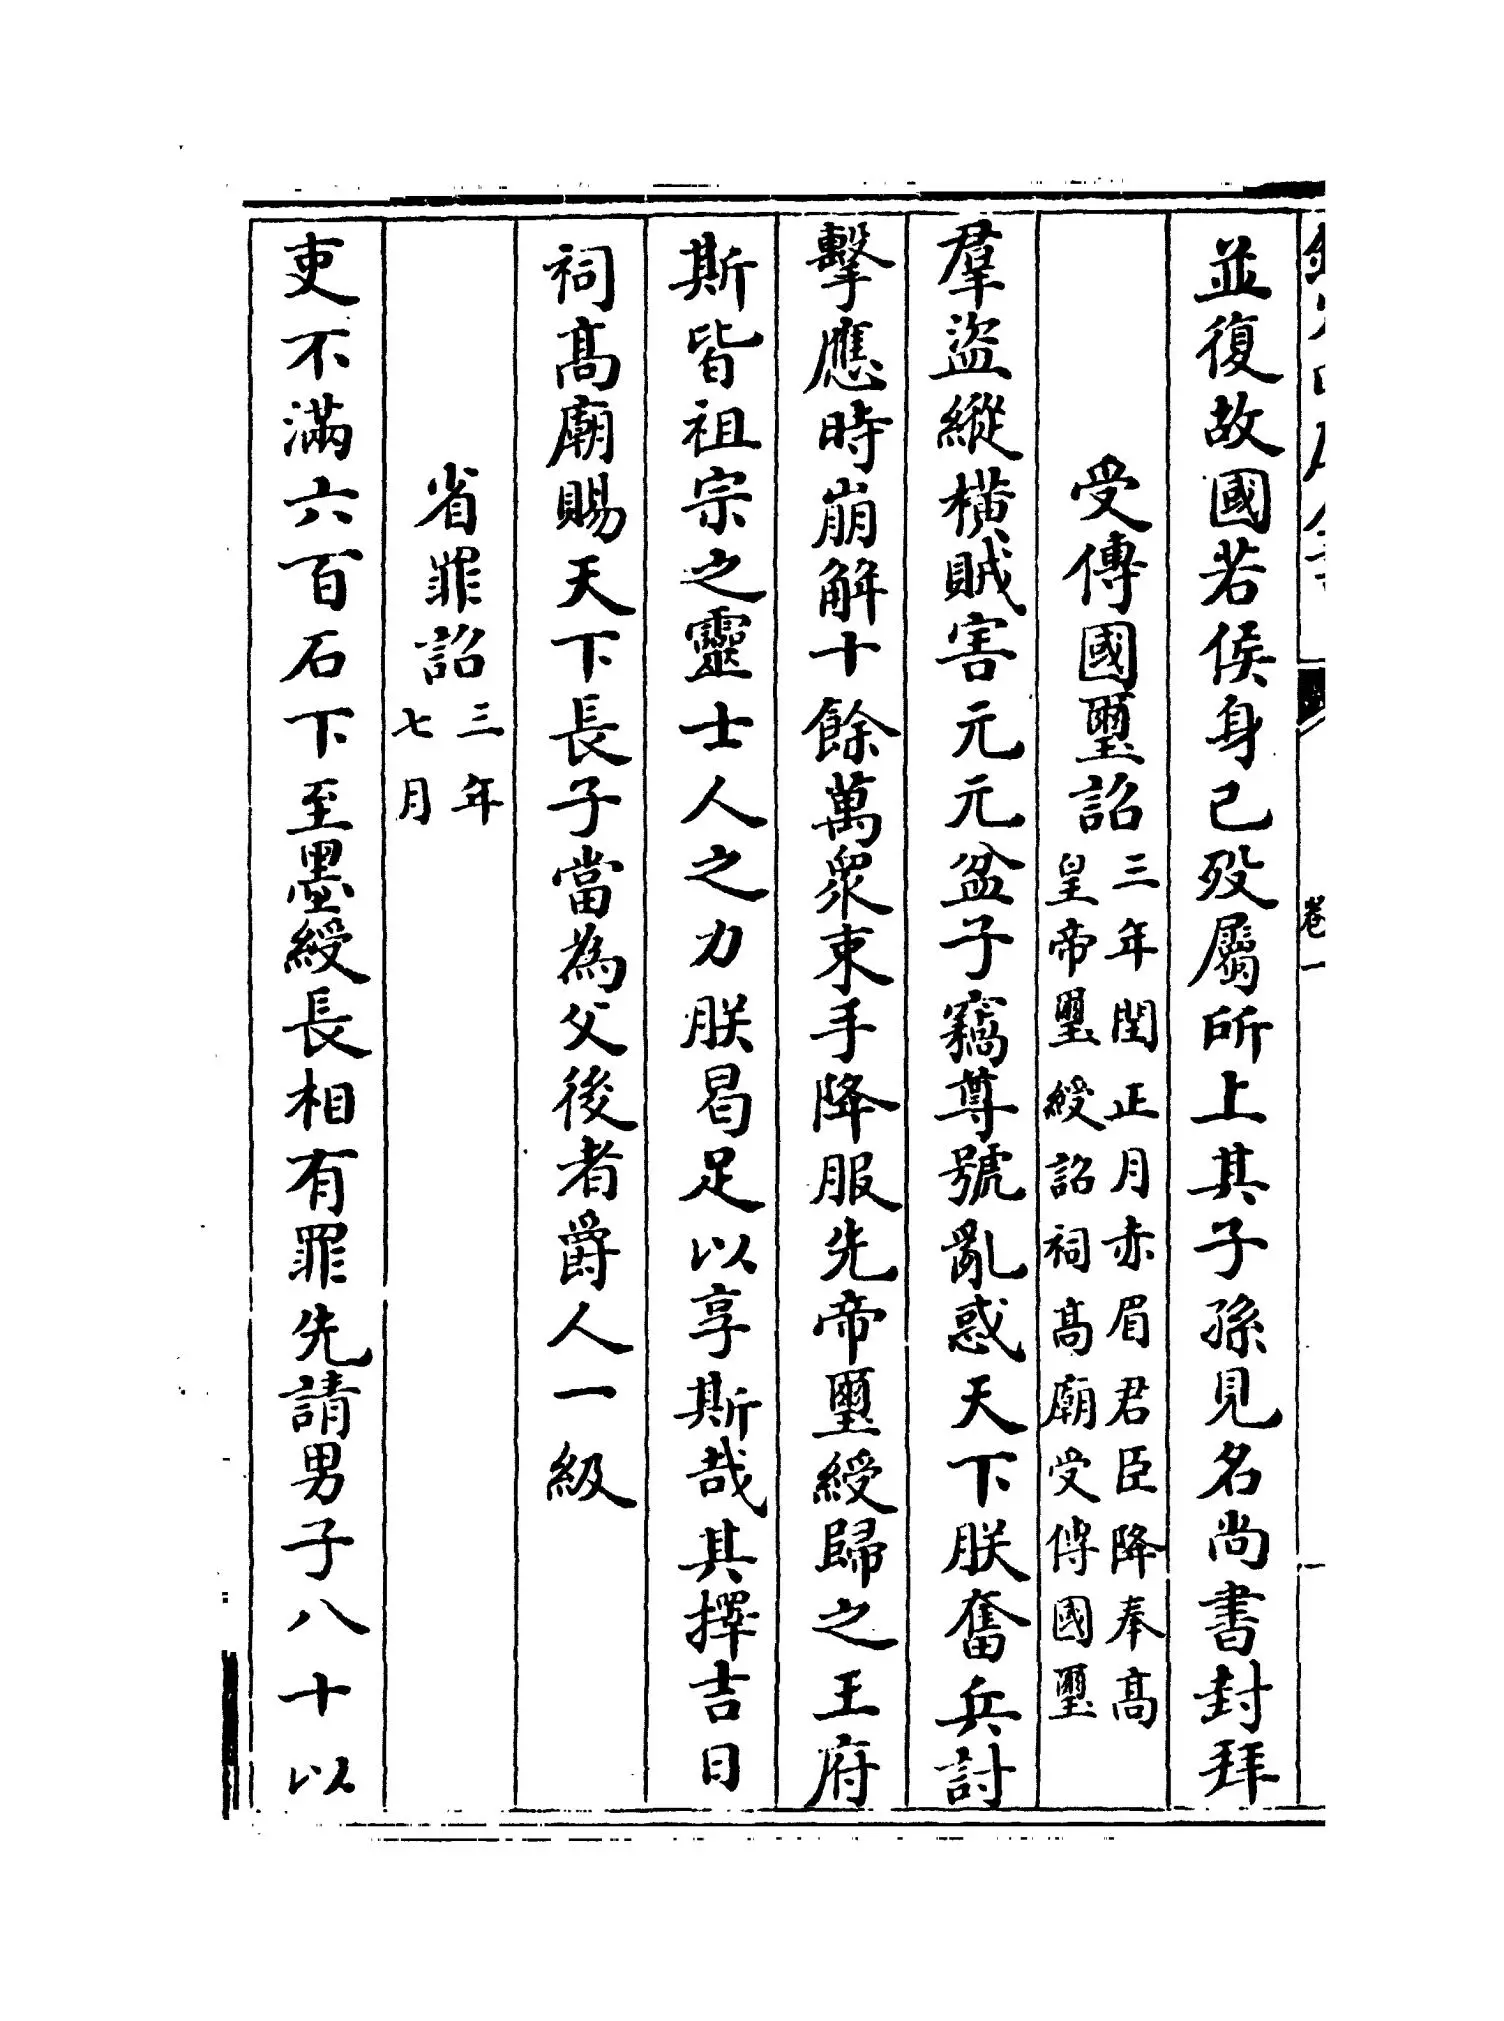 並復故國若侯身已歿屬所上其子孫見名尚書封拜
受傳國璽詔三年閏正月赤眉君臣降奉高皇帝璽綬詔祠高廟受傳國璽
羣盜縱橫賊害元元盆子竊尊號亂惑天下朕奮兵討
擊應時崩解十餘萬衆束手降服先帝璽綬歸之王府
斯皆祖宗之靈士人之力朕曷足以享斯哉其擇吉日
祠高廟賜天下長子當為父後者爵人一級
省罪詔三年七月
吏不滿六百石下至墨綬長相有罪先請男子八十以